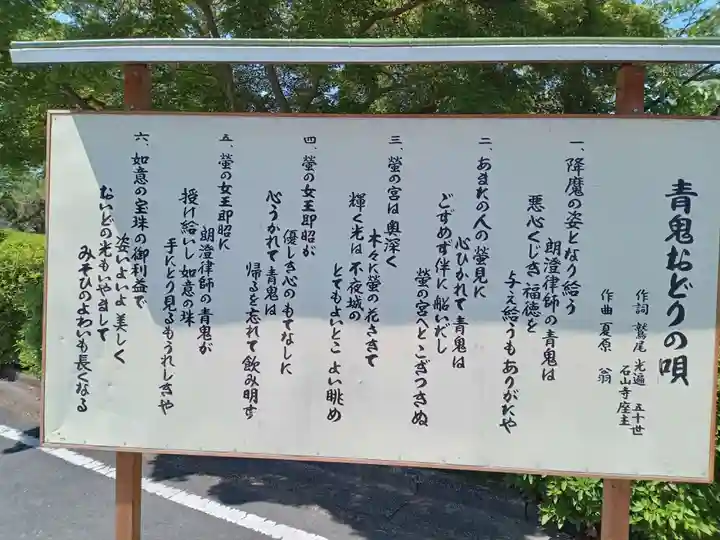 青鬼おどりの唄
作詞 鷲尾 光遍 五十世
石山寺座主
作曲 夏原 翁
一、降魔の姿となり給う
朗澄律師の青鬼は
悪心くじき福徳を
与え給うもありがたや
二、あまたの人の螢見に
心ひかれて青鬼は
ごずめず伴に船いだし
螢の宮へとこぎつきぬ
三、螢の宮は奥深く
木々に螢の花さきて
輝く光は不夜城の
とてもよいとこよい眺め
四、螢の女王即昭が
優しき心のもてなしに
心うかれて青鬼は
帰るを忘れて飲み明す
五、螢の女王即昭に
朗澄律師の青鬼が
授け給いし如意の珠
手にとり見るもうれしきや
六、如意の宝珠の御利益で
姿いよいよ美しく
おいどの光もいやまして
みそひのよわいも長くなる